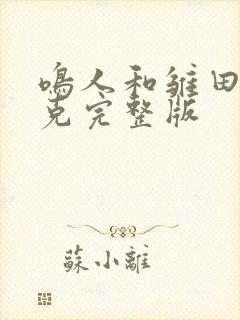 鳴人和雏田
克完整版
蘇小離